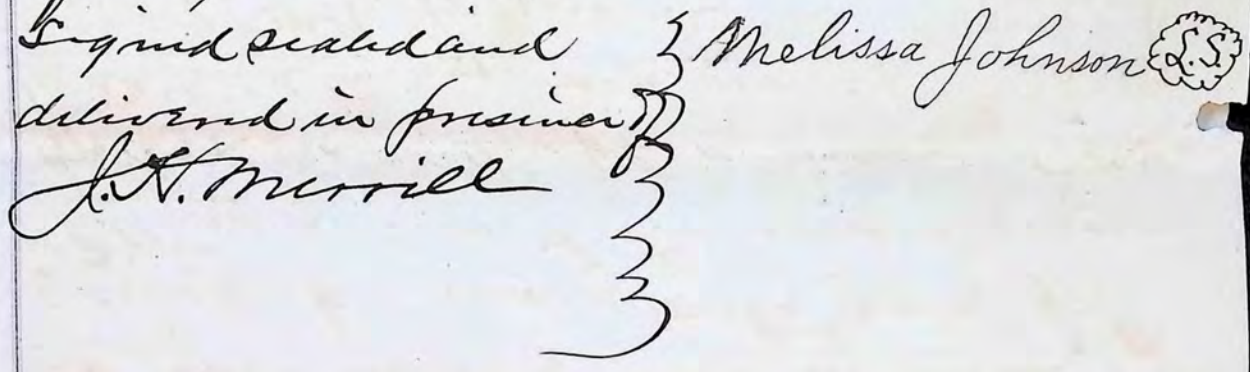 Signed sealed and
delivered in presence of
J. H. Merrill
Melissa Johnson L.S.